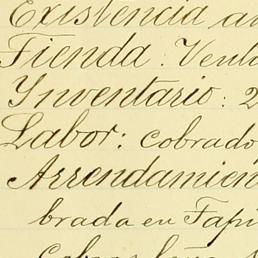 Existencia
Tienda. Vent
Ynventario: 2
Labor: cobrado
Arrendamien
brada en Tapi